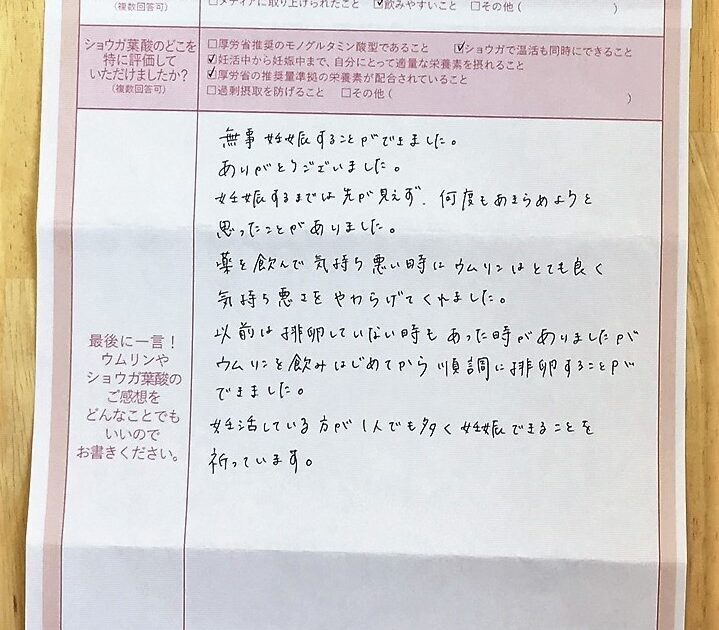 (複数回答可)
□メディアに取り上げられたこと ☑飲みやすいこと □その他( )
ショウガ葉酸のどこを
特に評価して
いただけましたか?
(複数回答可)
□厚労省推奨のモノグルタミン酸型であること ☑ショウガで温活も同時にできること
☑妊活中から妊娠中まで、自分にとって適量な栄養素を摂れること
☑厚労省の推奨量準拠の栄養素が配合されていること
□過剰摂取を防げること □その他( )
最後に一言!
ウムリンや
ショウガ葉酸の
ご感想を
どんなことでも
いいので
お書きください。
無事妊娠することができました。
ありがとうございました。
妊娠するまでは先が見えず、何度もあきらめようと
思ったことがありました。
薬を飲んで気持ち悪い時にウムリンはとても良く
気持ち悪さをやわらげてくれました。
以前は排卵していない時もあった時がありましたが
ウムリンを飲みはじめてから順調に排卵することが
できました。
妊活している方が1人でも多く妊娠できることを
祈っています。